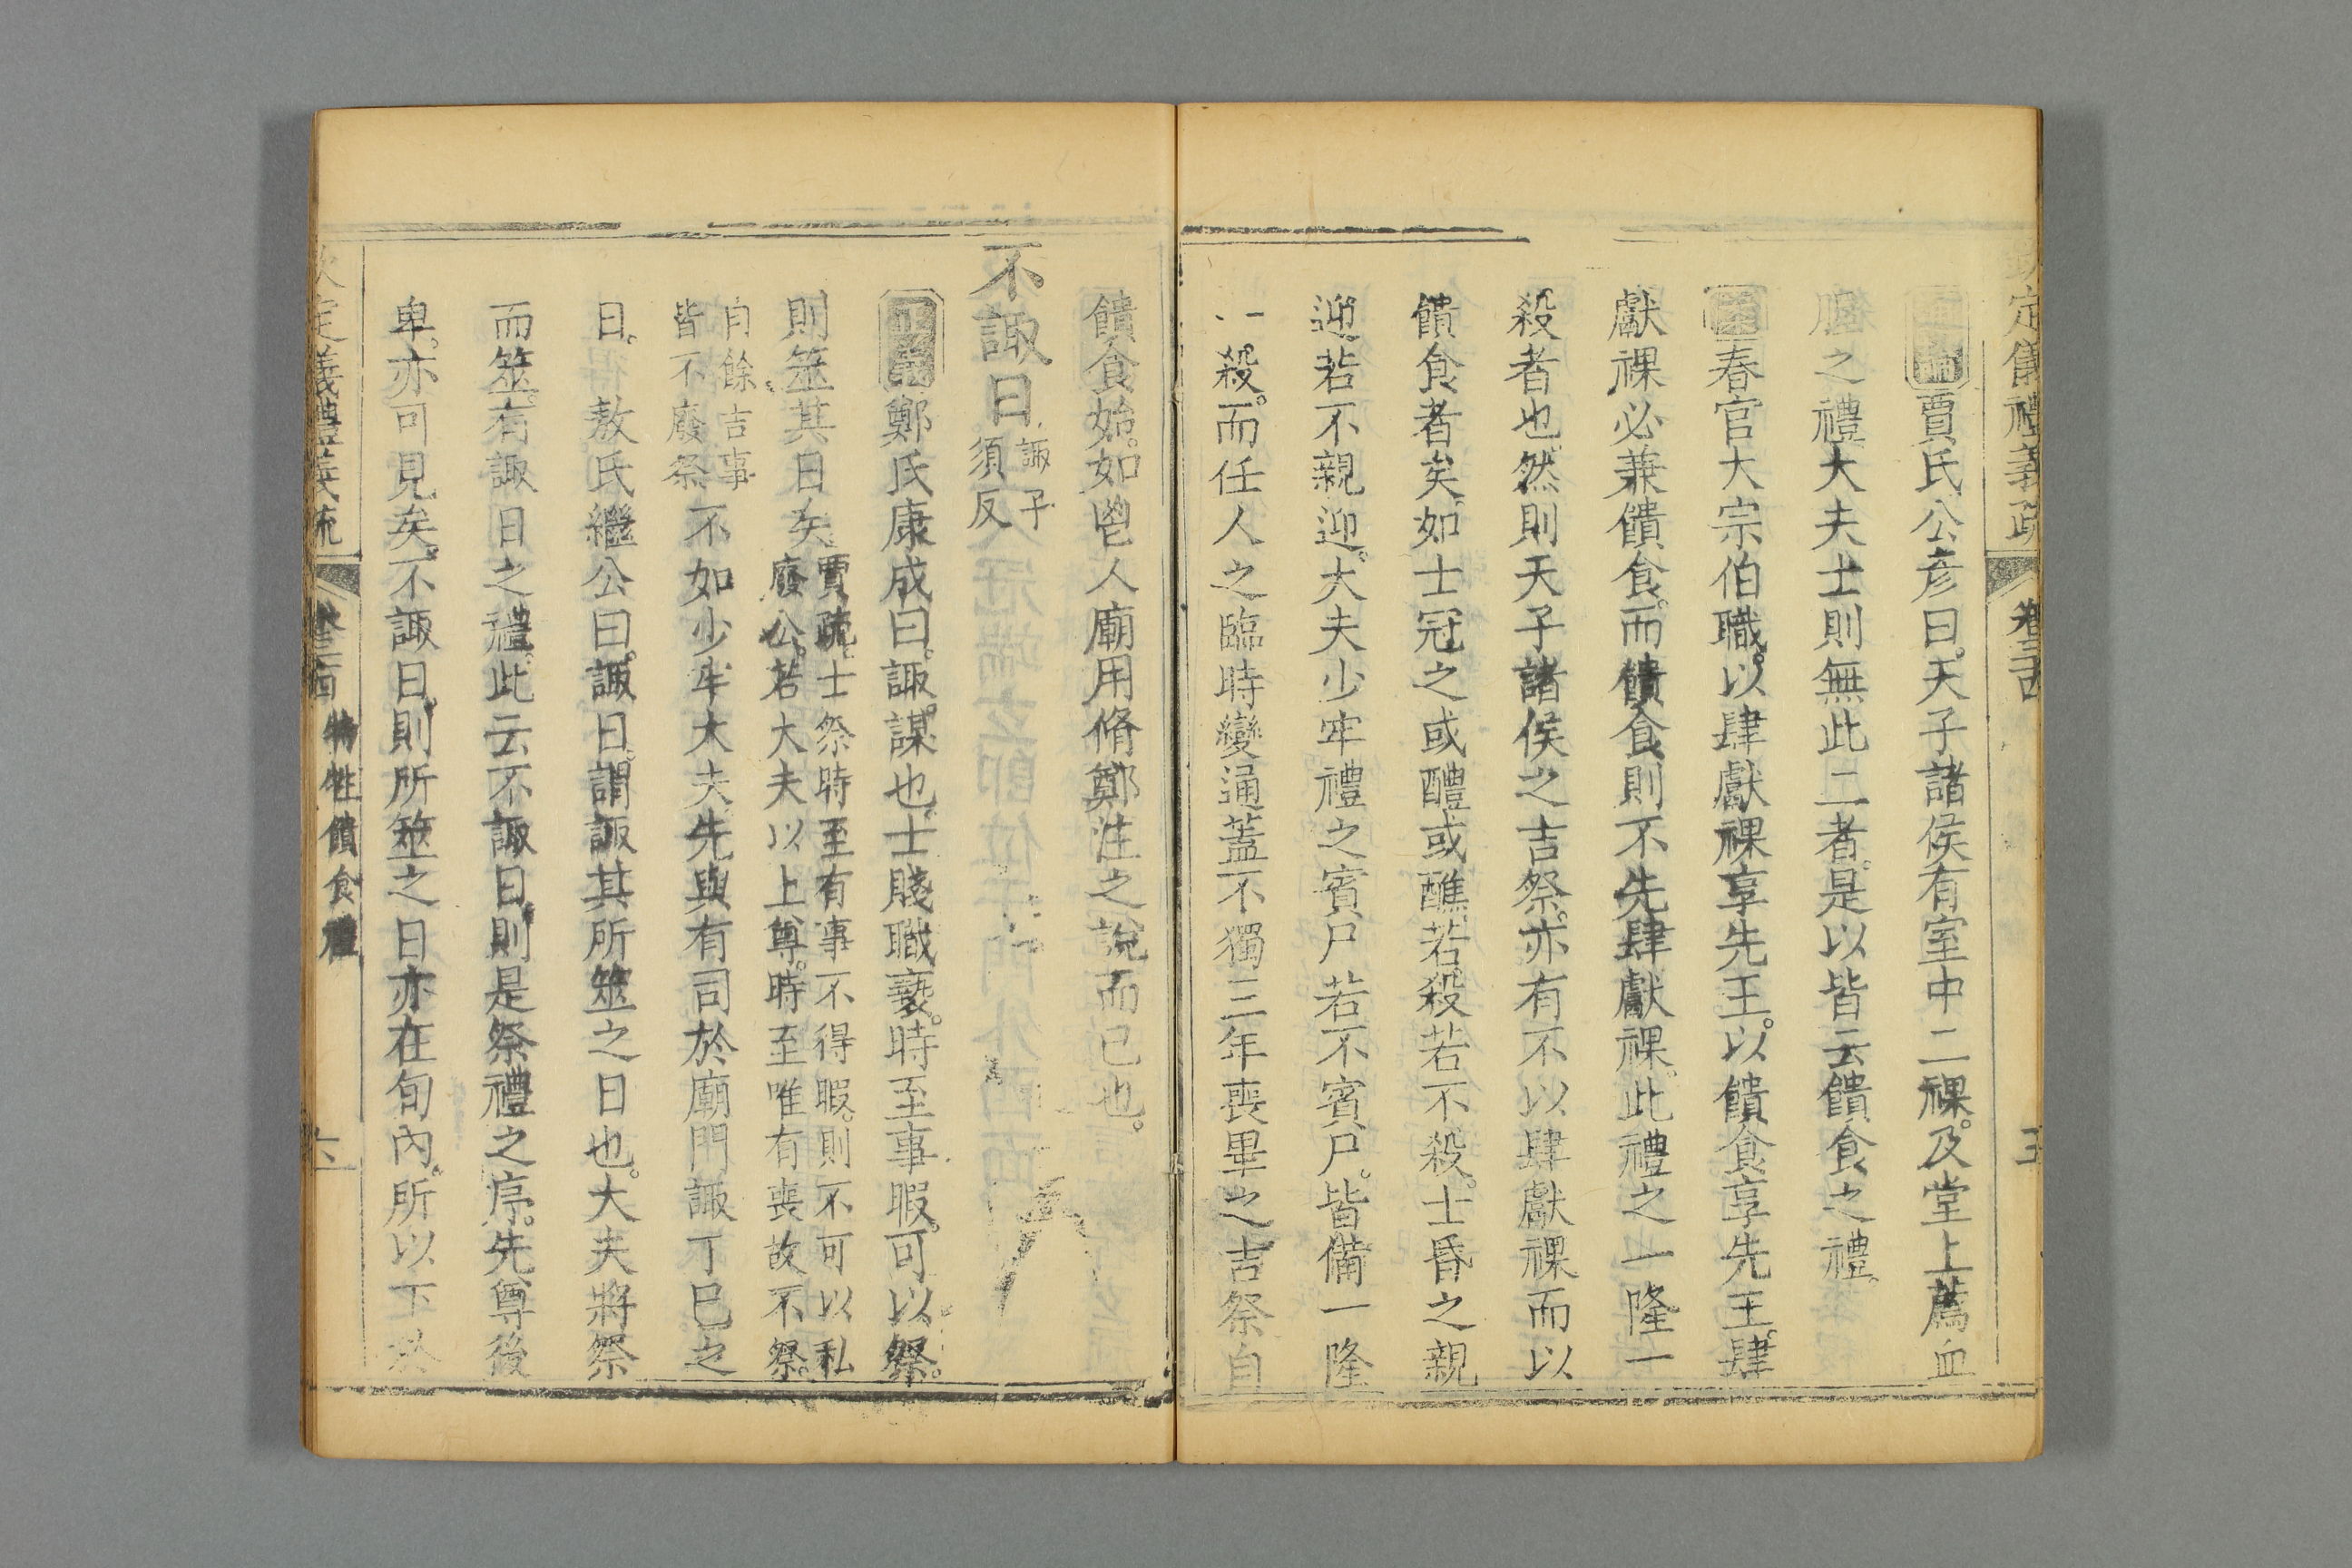 定儀禮義疏 卷三十四 五
論賈氏公彦曰天子諸侯有室中二祼及堂上薦血
腥之禮大夫士則無此二者是以皆云饋食之禮
案春官大宗伯職以肆獻祼享先王以饋食享先王肆
獻祼必兼饋食而饋食則不先肆獻祼此禮之一隆一
殺者也然則天子諸侯之吉祭亦有不以肆獻祼而以
饋食者矣如士冠之或醴或醮若殺若不殺士昏之親
迎若不親迎大夫少牢禮之賓尸若不賓尸皆備一隆
一殺而任人之臨時變通蓋不獨三年喪畢之吉祭自
饋食始如鬯人廟用脩鄭注之說而已也
不諏日諏子
須反
正義鄭氏康成曰諏謀也士賤職褻時至事暇可以祭
則筮其日矣賈疏士祭時至有事不得暇則不可以私
廢公若大夫以上尊時至唯有喪故不祭
自餘吉事
皆不廢祭不如少牢大夫先與有司於廟門諏丁巳之
日 敖氏繼公曰諏日謂諏其所筮之日也大夫將祭
而筮有諏日之禮此云不諏日則是祭禮之序先尊後
卑亦可見矣不諏日則所筮之日亦在旬內所以下
定義禮義疏 特牲饋食禮 六